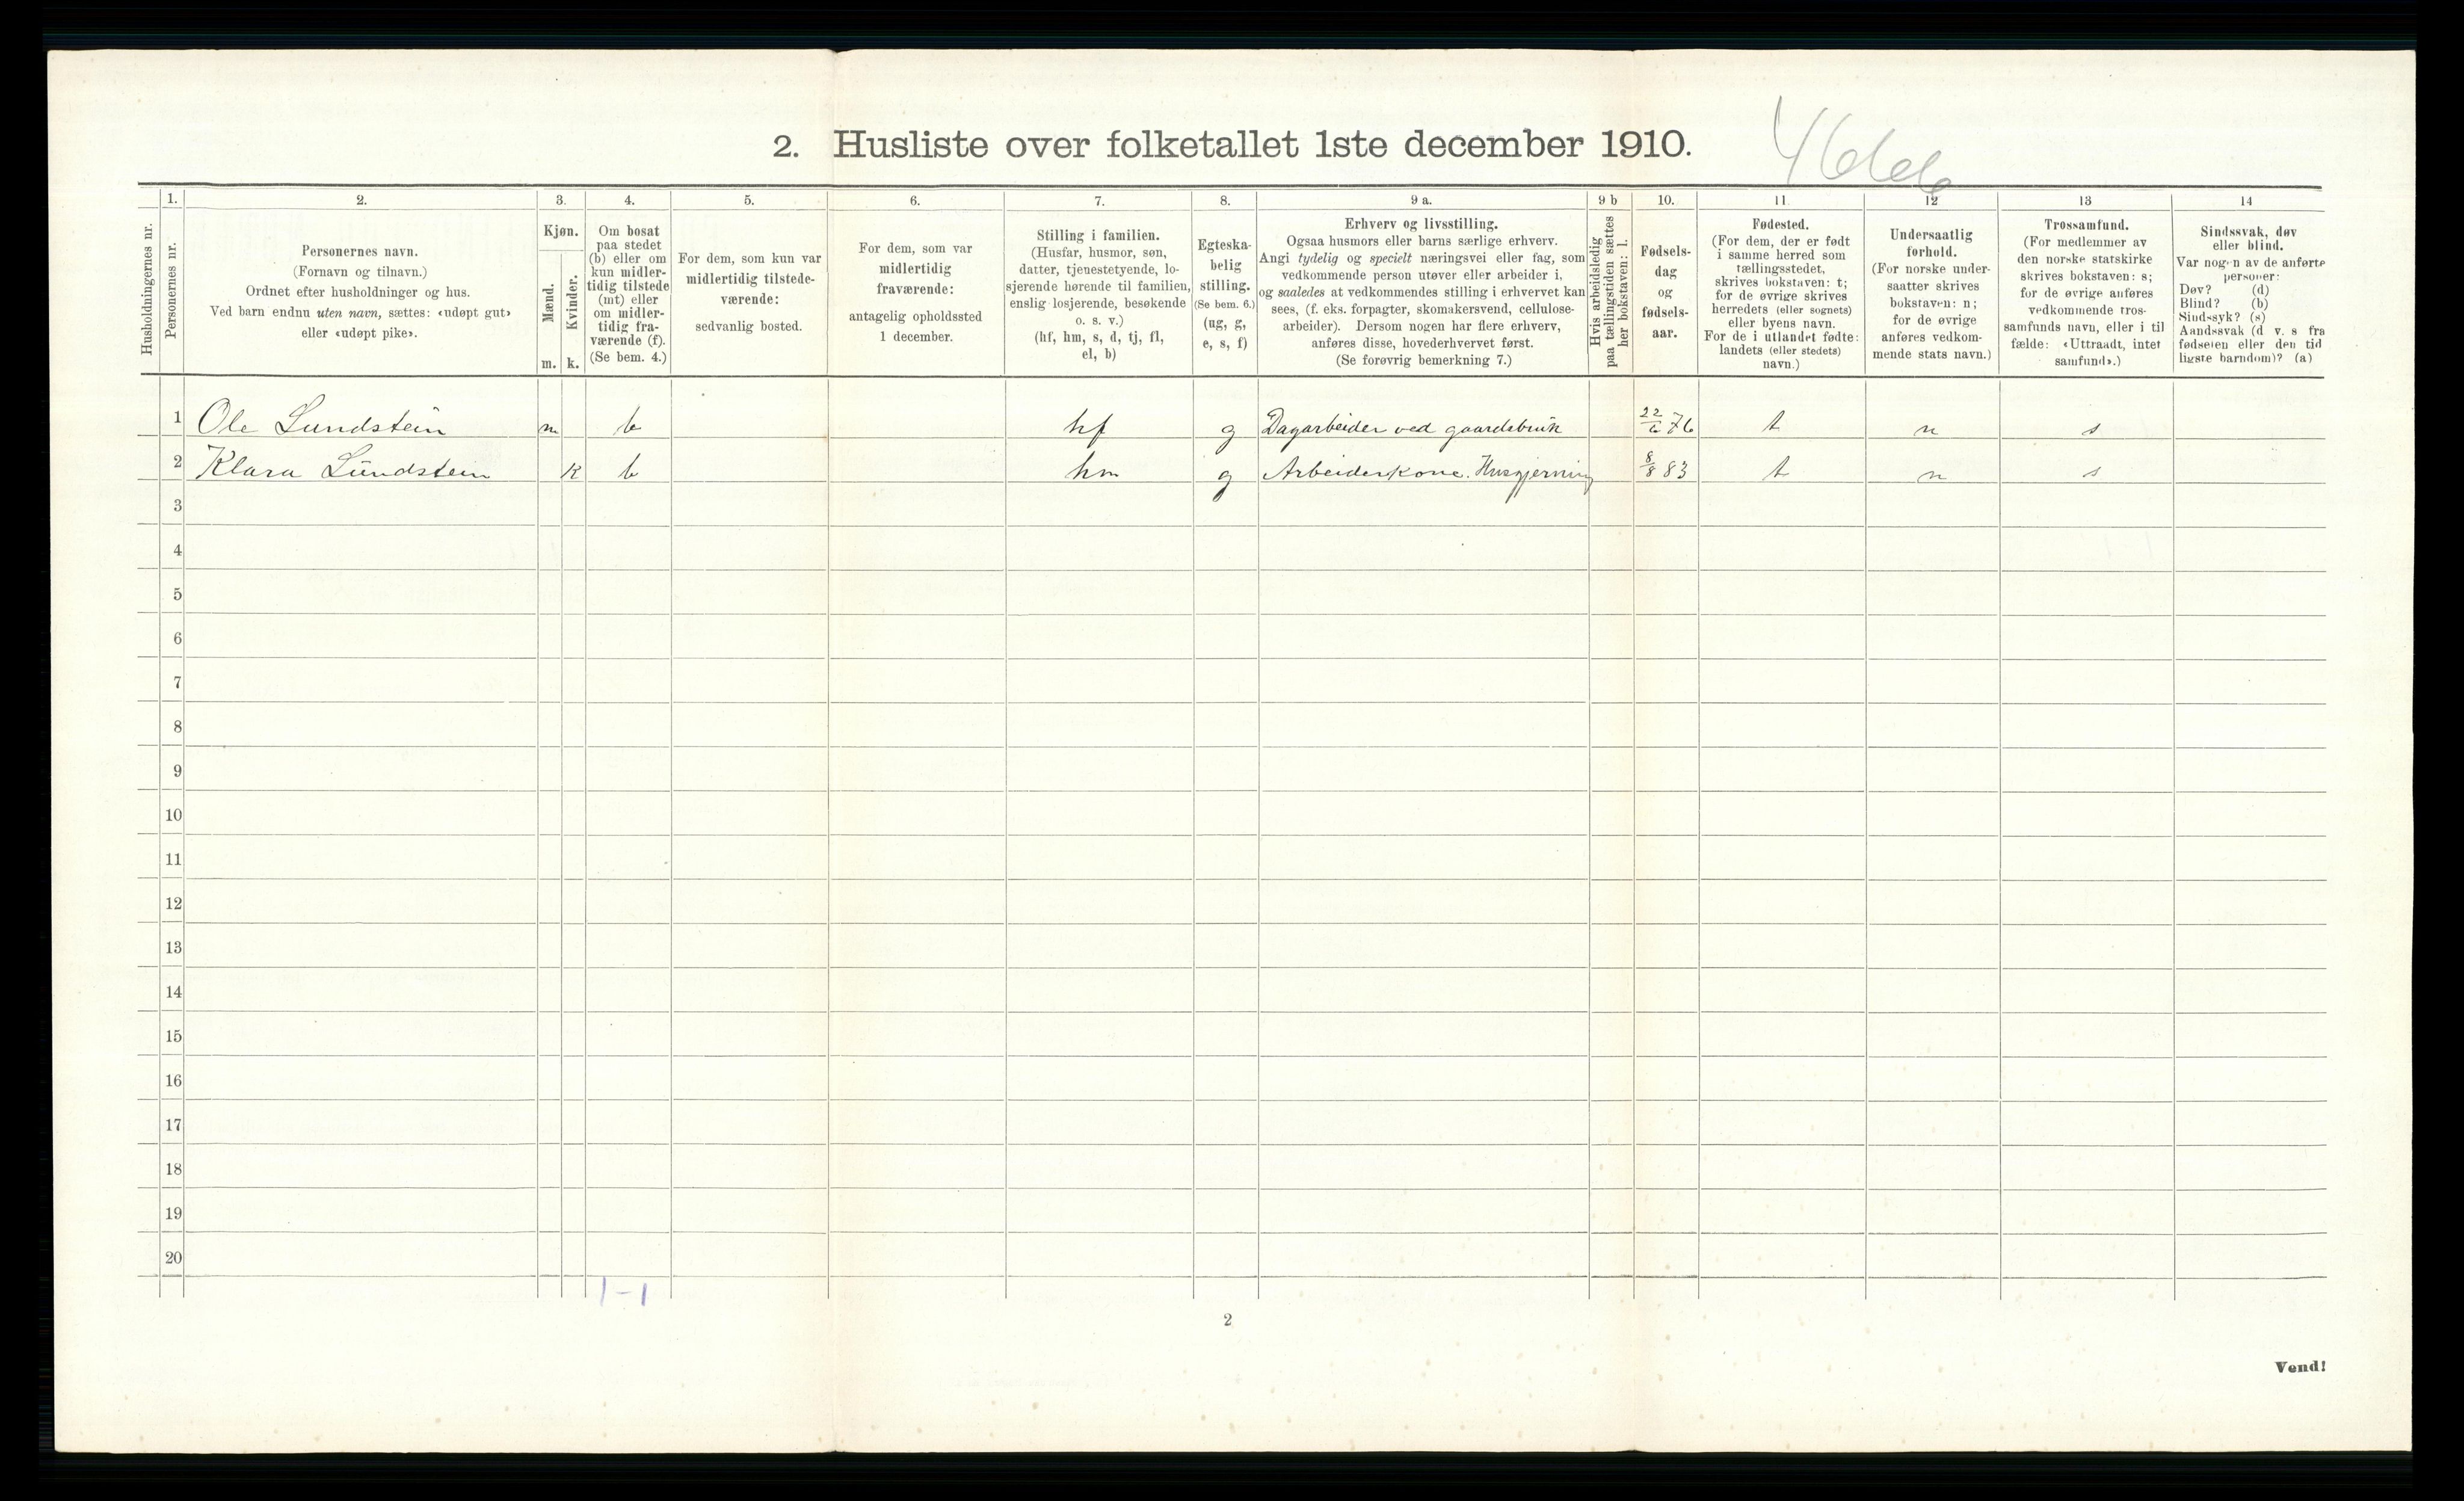 2. Husliste over folketallet 1ste december 1910.
Husholdningernes nr.
1.
Personernes nr.
2.
Personernes navn.
(Fornavn og tilnavn.)
Ordnet efter husholdninger og hus.
Ved barn endnu uten navn, sættes: «udøpt gut»
eller «udøpt pike».
3.
Kjøn.
Mænd.
m.
Kvinder.
k.
4.
Om bosat
paa stedet
(b) eller om
kun midler-
tidig tilstede
(mt) eller
om midler-
tidig fra-
værende (f).
(Se bem. 4.)
5.
For dem, som kun var
midlertidig tilstede-
værende:
sedvanlig bosted.
6.
For dem, som var
midlertidig
fraværende:
antagelig opholdssted
1 december.
7.
Stilling i familien.
(Husfar, husmor, søn,
datter, tjenestetyende, lo-
sjerende hørende til familien,
enslig losjerende, besøkende
o. s. v.)
(hf, hm, s, d, tj, fl,
el, b)
8.
Egteska-
belig
stilling.
(Se bem. 6.)
(ug, g,
e, s, f)
9 a.
Erhverv og livsstilling.
Ogsaa husmors eller barns særlige erhverv.
Angi tydelig og specielt næringsvei eller fag, som
vedkommende person utøver eller arbeider i,
og saaledes at vedkommendes stilling i erhvervet kan
sees, (f. eks. forpagter, skomakersvend, cellulose-
arbeider). Dersom nogen har flere erhverv,
anføres disse, hovederhvervet først.
(Se forøvrig bemerkning 7.)
9 b
Hvis arbeidsledig
paa tællingstiden sættes
her bokstaven: l.
10.
Fødsels-
dag
og
fødsels-
aar.
11.
Fødested.
(For dem, der er født
i samme herred som
tællingsstedet,
skrives bokstaven: t;
for de øvrige skrives
herredets (eller sognets)
eller byens navn.
For de i utlandet fødte:
landets (eller stedets)
navn.)
12
Undersaatlig
forhold.
(For norske under-
saatter skrives
bokstaven: n;
for de øvrige
anføres vedkom-
mende stats navn.)
13
Trossamfund.
(For medlemmer av
den norske statskirke
skrives bokstaven: s;
for de øvrige anføres
vedkommende tros-
samfunds navn, eller i til
fælde: «Uttraadt, intet
samfund».)
14
Sindssvak, døv
eller blind.
Var nogen av de anførte
personer:
Døv? (d)
Blind? (b)
Sindssyk? (s)
Aandssvak (d v. s fra
fødselen eller den tid
ligste barndom)? (a)
1 Ole Lundstein m b hf g Dagarbeider ved gaardsbruk 22/6 76 t n s
2 Klara Lundstein k b hm g Arbeiderkone. Husgjerning 8/8 83 t n s
3
4
5
6
7
8
9
10
11
12
13
14
15
16
17
18
19
20
1-1
2
Vend!